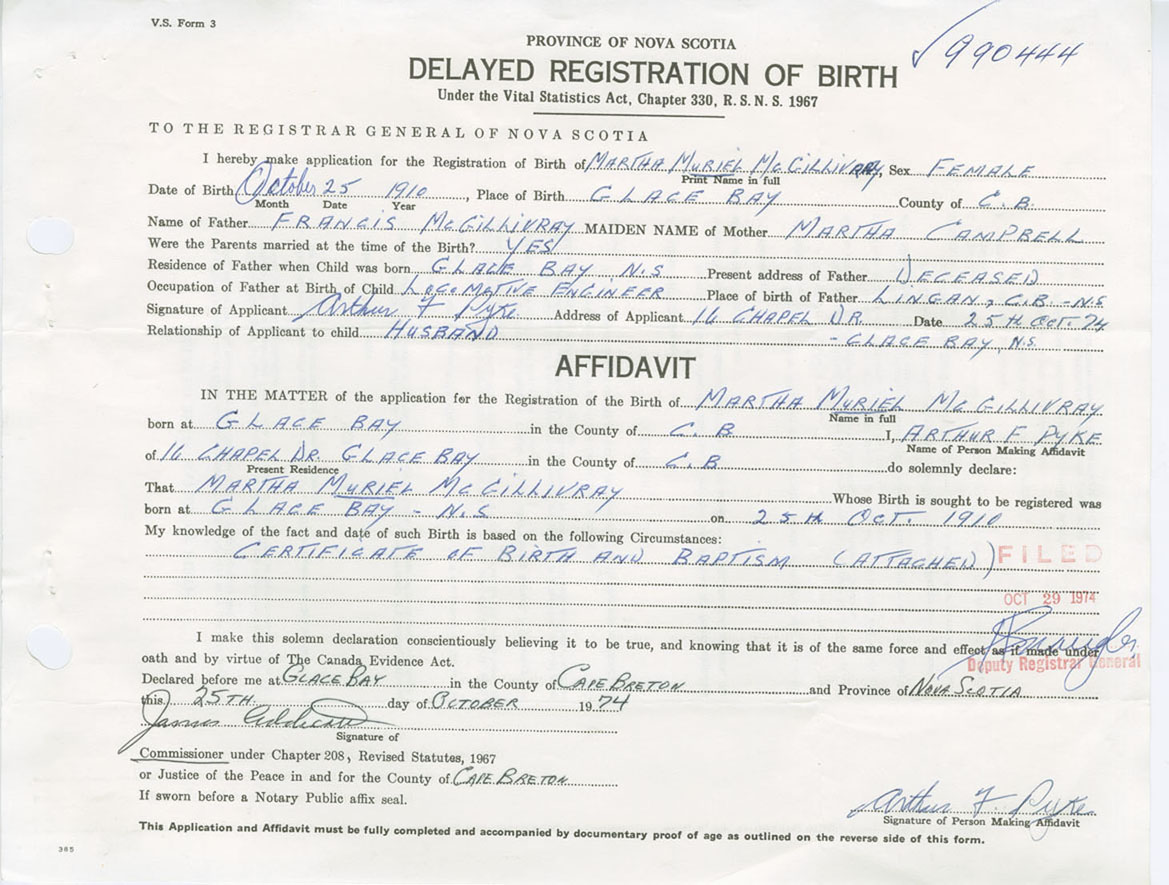 V.S. Form 3
✓990444
PROVINCE OF NOVA SCOTIA
DELAYED REGISTRATION OF BIRTH
Under the Vital Statistics Act, Chapter 330, R. S. N. S. 1967
TO THE REGISTRAR GENERAL OF NOVA SCOTIA
I hereby make application for the Registration of Birth of MARTHA MURIEL McGILLIVRAY, Sex FEMALE
Print Name in full
Date of Birth October 25 1910, Place of Birth GLACE BAY County of C.B.
Month Date Year
Name of Father FRANCIS McGILLIVRAY MAIDEN NAME of Mother MARTHA CAMPBELL
Were the Parents married at the time of the Birth? YES
Residence of Father when Child was born GLACE BAY N.S Present address of Father DECEASED
Occupation of Father at Birth of Child LOCOMOTIVE ENGINEER Place of birth of Father LINGAN, C.B. - N.S
Signature of Applicant Arthur F Pyke Address of Applicant 16 CHAPEL DR. Date 25TH OCT. 74
Relationship of Applicant to child HUSBAND - GLACE BAY, N.S.
AFFIDAVIT
IN THE MATTER of the application for the Registration of the Birth of MARTHA MURIEL McGILLIVRAY
Name in full
born at GLACE BAY in the County of C.B I, ARTHUR F PYKE
Name of Person Making Affidavit
of 16 CHAPEL DR. GLACE BAY in the County of C.B do solemnly declare:
Present Residence
That MARTHA MURIEL McGILLIVRAY Whose Birth is sought to be registered was
born at GLACE BAY - N.S on 25TH OCT. 1910
My knowledge of the fact and date of such Birth is based on the following Circumstances:
CERTIFICATE OF BIRTH AND BAPTISM (ATTACHED)
FILED
OCT 29 1974
I make this solemn declaration conscientiously believing it to be true, and knowing that it is of the same force and effect as if made under
oath and by virtue of The Canada Evidence Act.
Deputy Registrar General
Declared before me at GLACE BAY in the County of CAPE BRETON and Province of NOVA SCOTIA
this 25TH day of OCTOBER 1974
James
Signature of
Commissioner under Chapter 208, Revised Statutes, 1967
or Justice of the Peace in and for the County of CAPE BRETON
If sworn before a Notary Public affix seal.
Arthur F. Pyke
Signature of Person Making Affidavit
This Application and Affidavit must be fully completed and accompanied by documentary proof of age as outlined on the reverse side of this form.
385